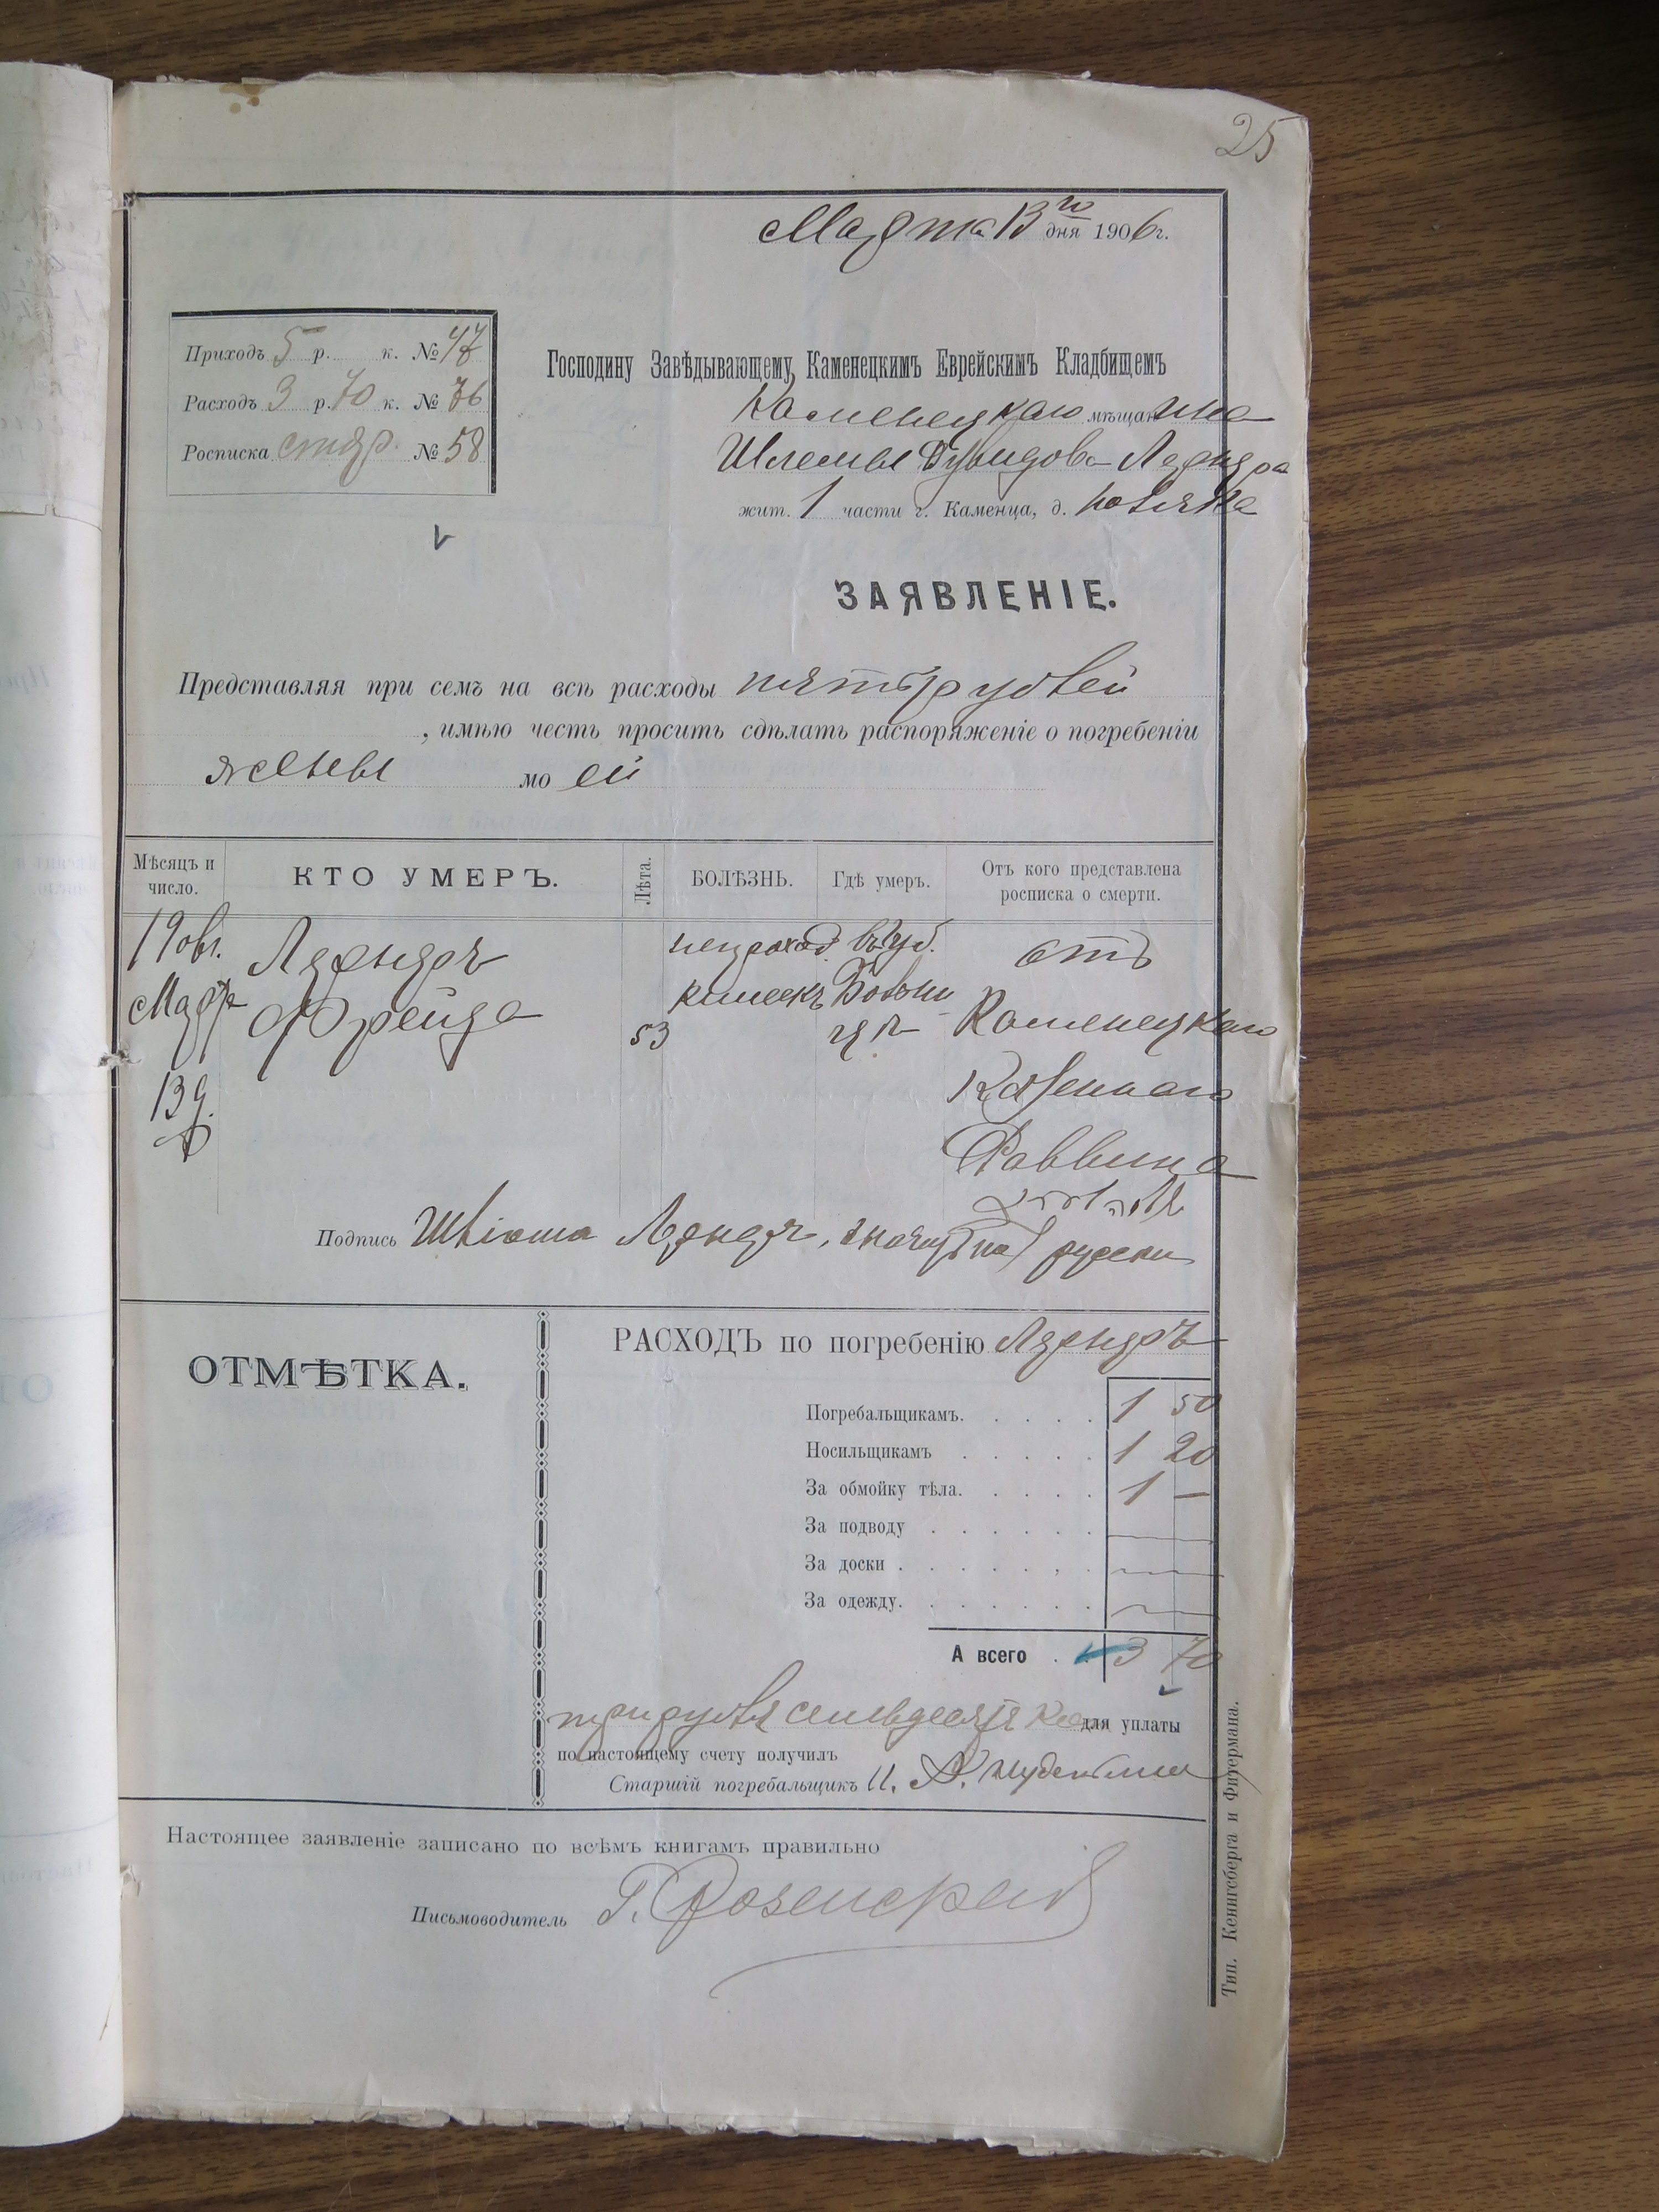 25
Марта 13го дня 1906г.
Приходъ 5 р. к. № 47
Расходъ 3 р. 70 к. № 76
Росписка стар. № 58
Господину Завѣдывающему Каменецкимъ Еврейскимъ Кладбищемъ
Каменецкаго мѣщанина
Шлемы Дувидова
жит. 1 части г. Каменца, д.
ЗАЯВЛЕНІЕ.
Представляя при семъ на всѣ расходы пять рублей
, имѣю честь просить сдѣлать распоряженіе о погребеніи
жены моей
Мѣсяцъ и число.
КТО УМЕРЪ.
Лѣта.
БОЛѢЗНЬ.
Гдѣ умеръ.
Отъ кого представлена росписка о смерти.
Марта
13
Фрейда
53
непроход. кишекъ
отъ
Каменецкаго
Казеннаго
Раввина
Подпись
ОТМѢТКА.
РАСХОДЪ по погребенію
Погребальщикамъ. . . . . 1 50
Носильщикамъ . . . . . 1 20
За обмойку тѣла. . . . . 1 —
За подводу . . . . . .
За доски . . . . . . .
За одежду. . . . . . .
А всего . . 3 70
три рубля семьдесятъ коп для уплаты
по настоящему счету получилъ
Старшій погребальщикъ
Настоящее заявленіе записано по всѣмъ книгамъ правильно
Письмоводитель Г.
Тип. Кенигсберга и Фитермана.